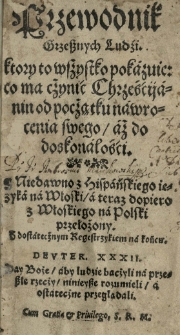 Przewodnik
Grzeßnych Ludźi.
ktory to wßzystko pokazuie:
co ma cżynić Chrześćijá-
nin od pocżątku náwro-
cenia swego/ áż do
doskonałośći.
Niedawno z Hißpáńskiego ię-
zyká ná Włoski/ á teraz dopiero
z Włoskiego ná Polski
przełożony.
Z dostátecżnym Regestrzykiem ná końcu.
DEVTER. XXXII.
Day Boże/ áby ludzie bacżyli ná prze-
ßłe rzecży/ ninieyße rozumieli/ á
ostátecżne przeglądáli.
Cum Gratia & Priuilegio, S. R. M.